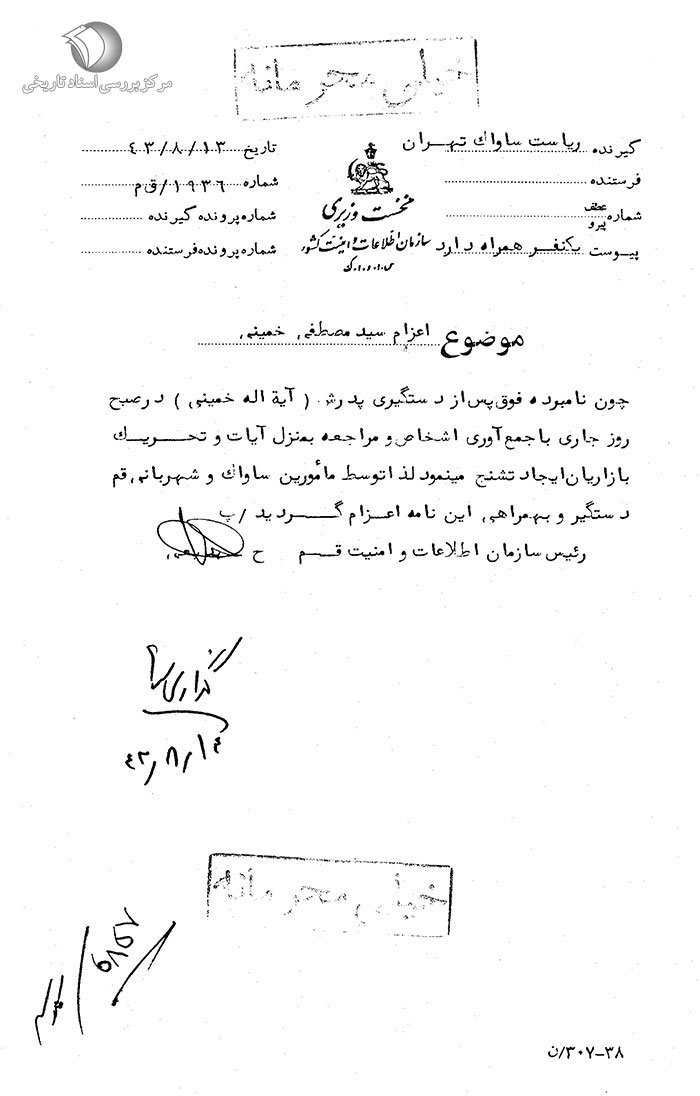 مرکز بررسی اسناد تاریخی
خیلی محرمانه
گیرنده ریاست ساواك تهران
فرستنده
شماره عطف پیرو
پیوست یکنفر همراه دارد
نخست وزیری
سازمان اطلاعات و امنیت کشور
س.ا.و.ا.ک
تاریخ ۴۳/۸/۱۳
شماره ۱۹۳۶/ق م
شماره پرونده گیرنده
شماره پرونده فرستنده
موضوع اعزام سید مصطفی خمینی
چون نامبرده فوق پس از دستگیری پدرش (آیة اله خمینی) در صبح
روز جاری با جمع آوری اشخاص و مراجعه بمنزل آیات و تحریك
بازاریان ایجاد تشنج مینمود لذا توسط مأمورین ساواك و شهربانی قم
دستگیر و بهمراهی این نامه اعزام گردید /پ
رئیس سازمان اطلاعات و امنیت قم ح
۴۳٫۸٫۱۴
خیلی محرمانه
۳۰۷-۳۸/ن